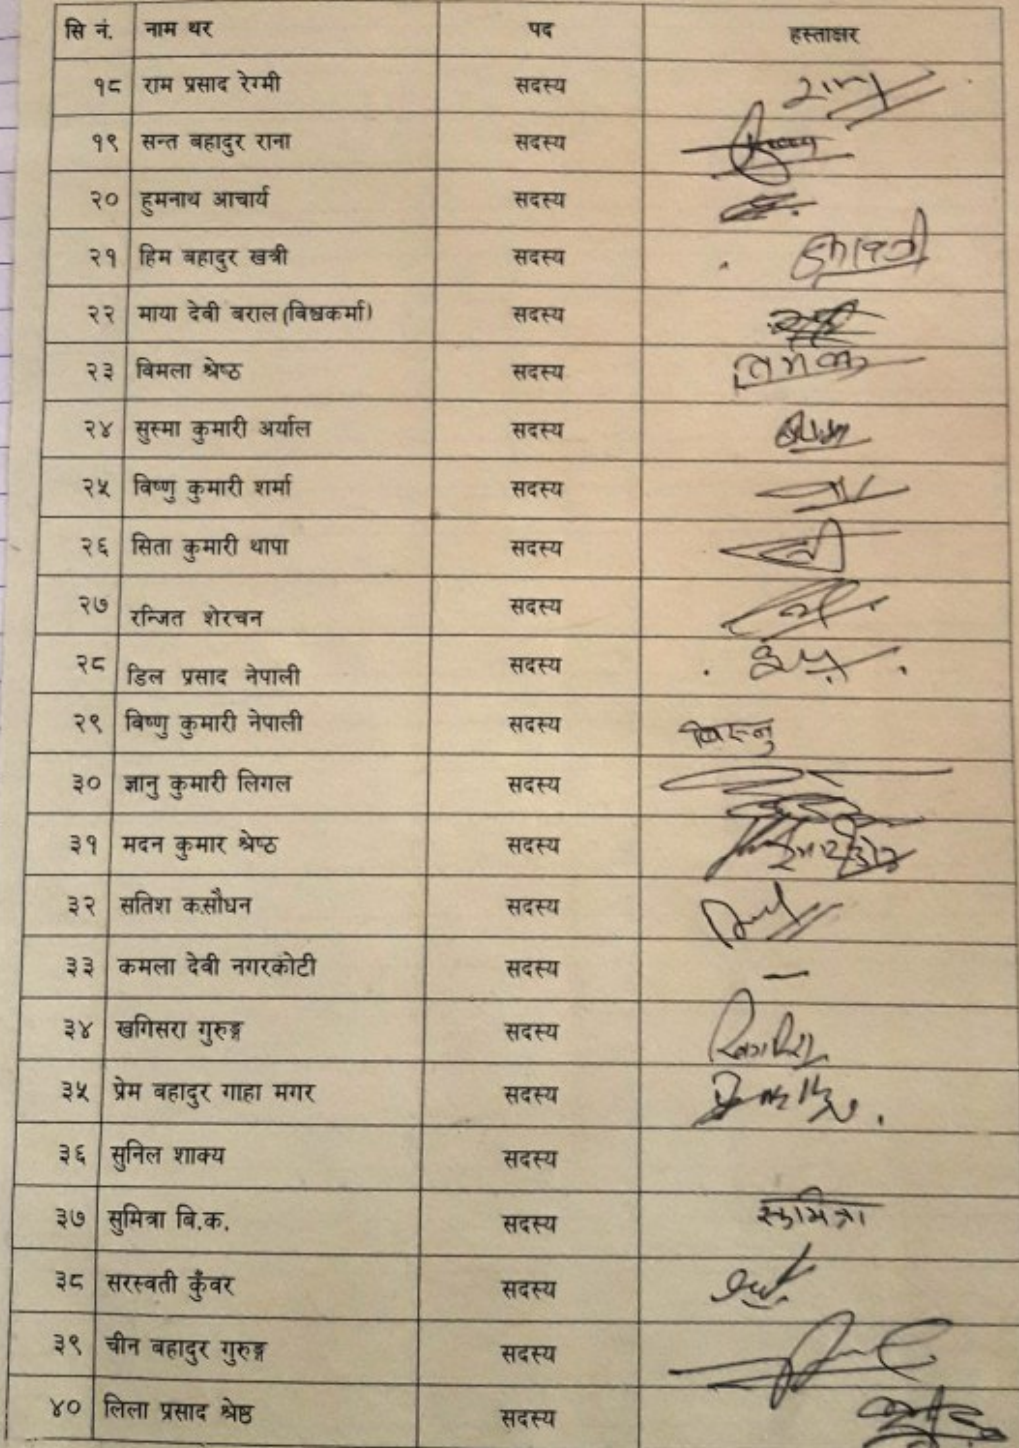 सि नं. नाम थर पद हस्ताक्षर
१८ राम प्रसाद रेग्मी सदस्य राम
१९ सन्त बहादुर राना सदस्य
२० हुमनाथ आचार्य सदस्य
२१ हिम बहादुर खत्री सदस्य
२२ माया देवी बराल (विश्वकर्मा) सदस्य
२३ विमला श्रेष्ठ सदस्य
२४ सुस्मा कुमारी अर्याल सदस्य
२५ विष्णु कुमारी शर्मा सदस्य
२६ सिता कुमारी थापा सदस्य
२७ रन्जित शेरचन सदस्य
२८ डिल प्रसाद नेपाली सदस्य
२९ विष्णु कुमारी नेपाली सदस्य विस्नु
३० ज्ञानु कुमारी लिगल सदस्य
३१ मदन कुमार श्रेष्ठ सदस्य
३२ सतिश कसौधन सदस्य
३३ कमला देवी नगरकोटी सदस्य –
३४ खगिसरा गुरुङ्ग सदस्य
३५ प्रेम बहादुर गाहा मगर सदस्य
३६ सुनिल शाक्य सदस्य
३७ सुमित्रा बि.क. सदस्य सुमित्रा
३८ सरस्वती कुँवर सदस्य
३९ चीन बहादुर गुरुङ्ग सदस्य
४० लिला प्रसाद श्रेष्ठ सदस्य